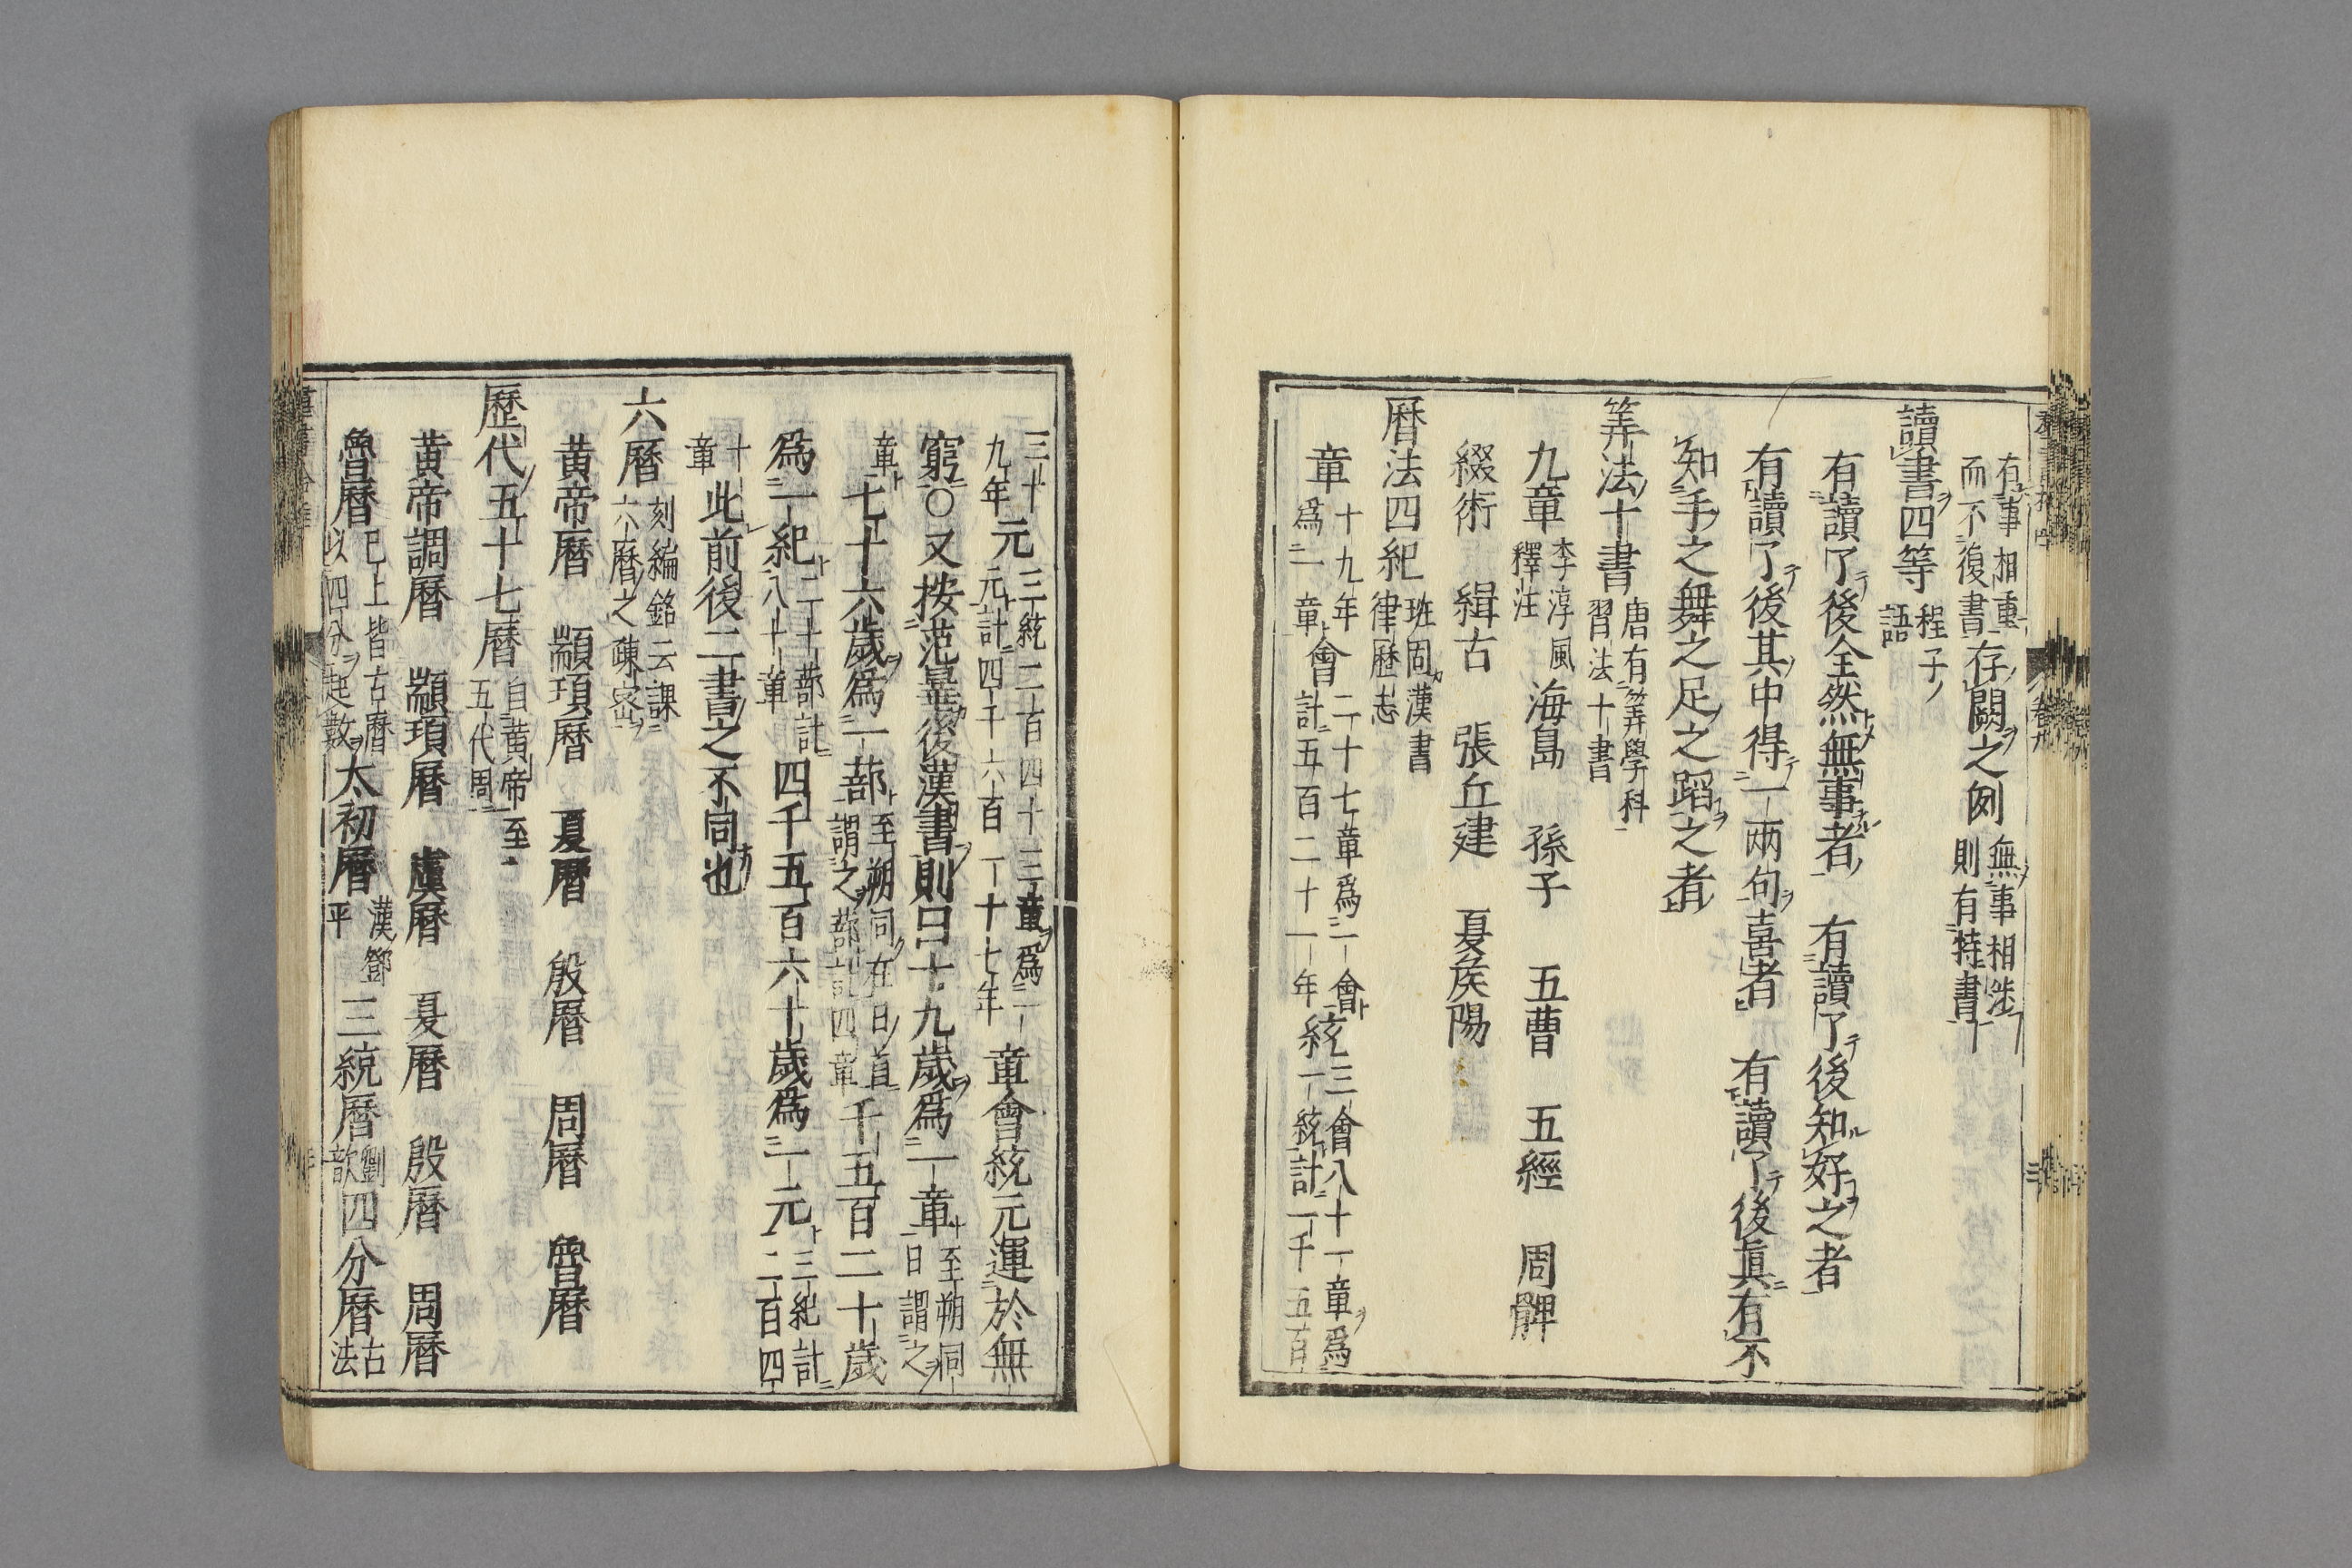 有事相重而不復書存闕之例無事相涉則有特書
讀書四等程子語
有讀了後全然無事者　有讀了後知好之者
有讀了後其中得一兩句喜者　有讀了後眞有不
知手之舞之足之蹈之者
筭法十書唐有筭學科習法十書
九章李淳風釋注海島　孫子　五曹　五經　周髀
綴術　緝古　張丘建　夏侯陽
曆法四紀班固漢書律歷志
章十九年爲一章會二十七章爲一會計五百一十三年統三會八十一章爲一統計一千五百
三十九年元三統二百四十三章爲一元計四千六百一十七年章會統元運於無
窮○又按范曄後漢書則曰十九歲爲一章至朔同日謂之章
七十六歲爲一蔀至朔同在日首謂之蔀計四章千五百二十歲
爲一紀二十蔀計八十章四千五百六十歲爲一元三紀計二百四
十章此前後二書之不同也
六曆刻編銘云課六曆之疎密
黃帝曆　顓頊曆　夏曆　殷曆　周曆　魯曆
歷代五十七曆自黃帝至五代周
黃帝調曆　顓頊曆　虞曆　夏曆　殷曆　周曆
魯曆已上皆古曆以四分起數太初曆漢鄧平三統曆劉歆四分曆古法